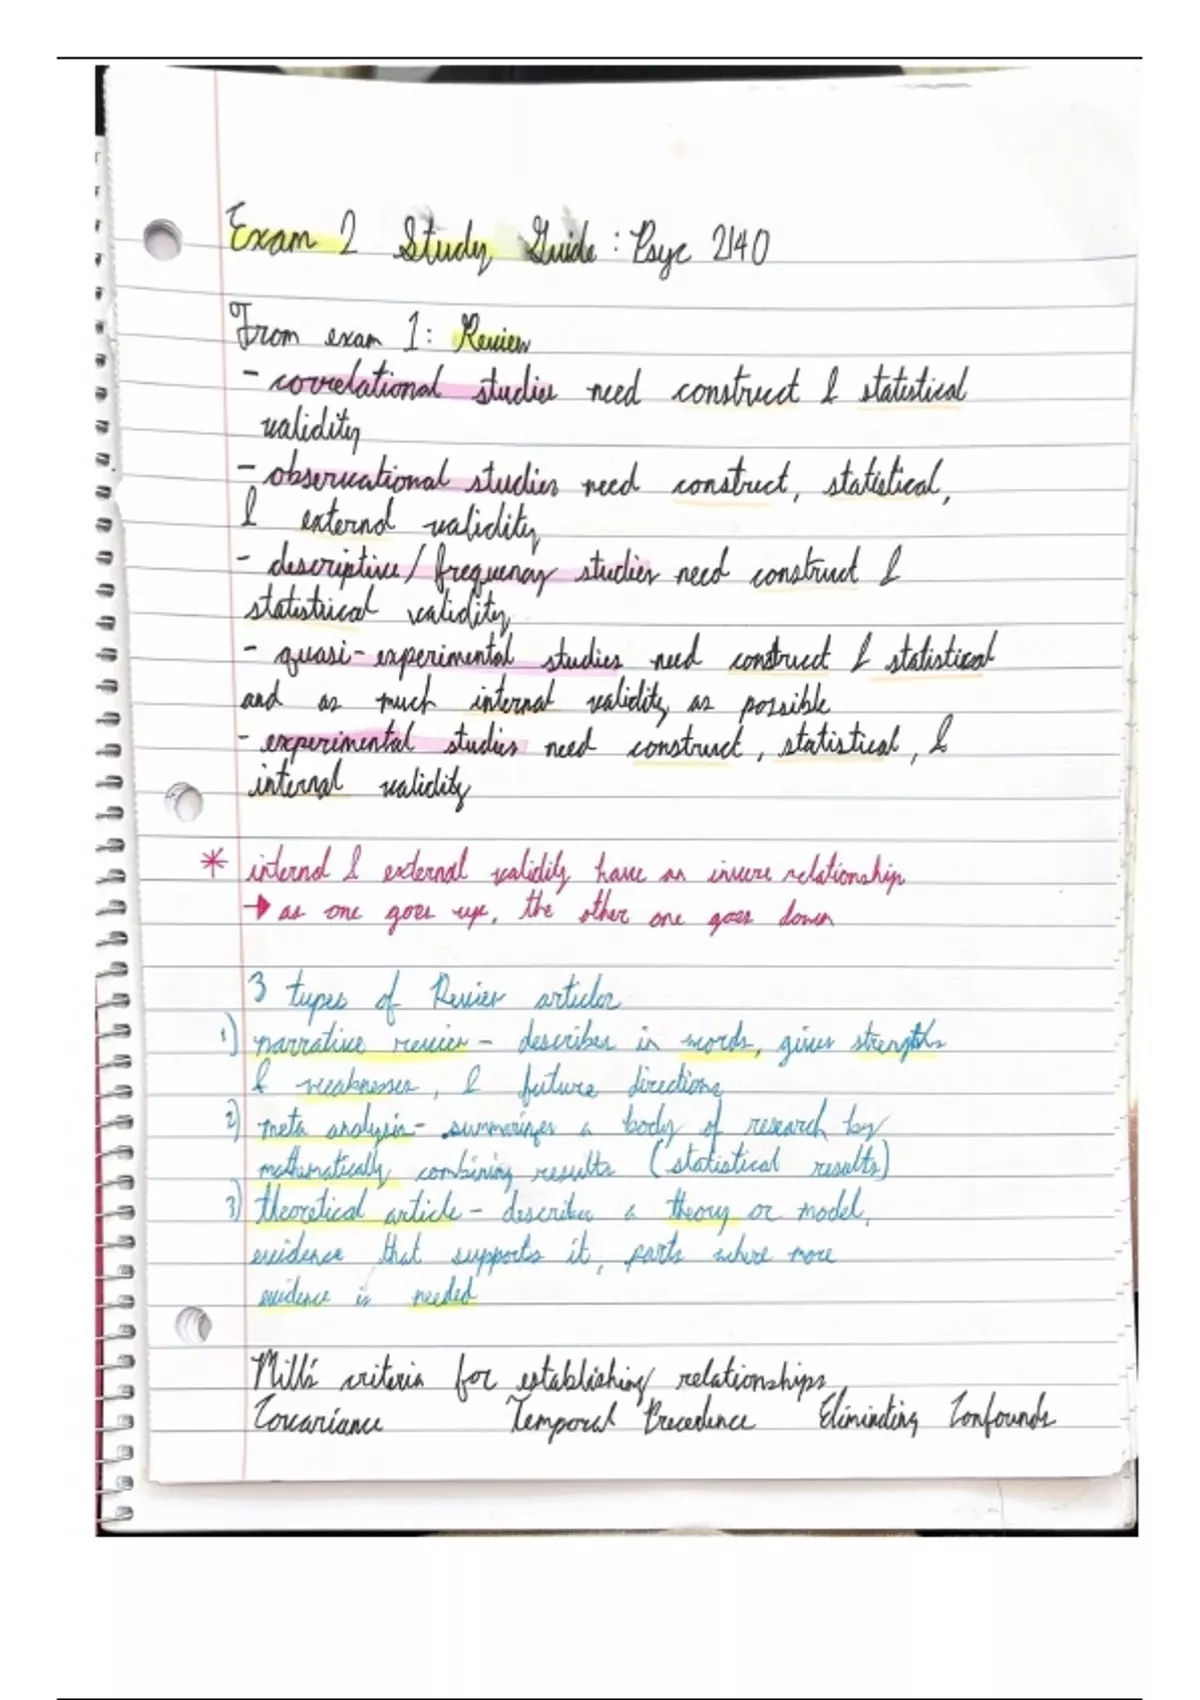 Exam 2 Study Guide: Psyc 2140
From exam 1: Review
- correlational studies need construct & statistical
validity
- observational studies need construct, statistical,
& external validity
- descriptive/frequency studies need construct &
statistical validity
- quasi-experimental studies need construct & statistical
and as much internal validity as possible
- experimental studies need construct, statistical, &
internal validity
* internal & external validity have an inverse relationship
→ as one goes up, the other one goes down
3 types of Review articles
1) narrative review - describes in words, gives strengths
& weaknesses, & future directions
2) meta analysis - summarizes a body of research by
mathematically combining results (statistical results)
3) theoretical article - describes a theory or model,
evidence that supports it, parts where more
evidence is needed
Mill's criteria for establishing relationships
Covariance Temporal Precedence Eliminating Confounds